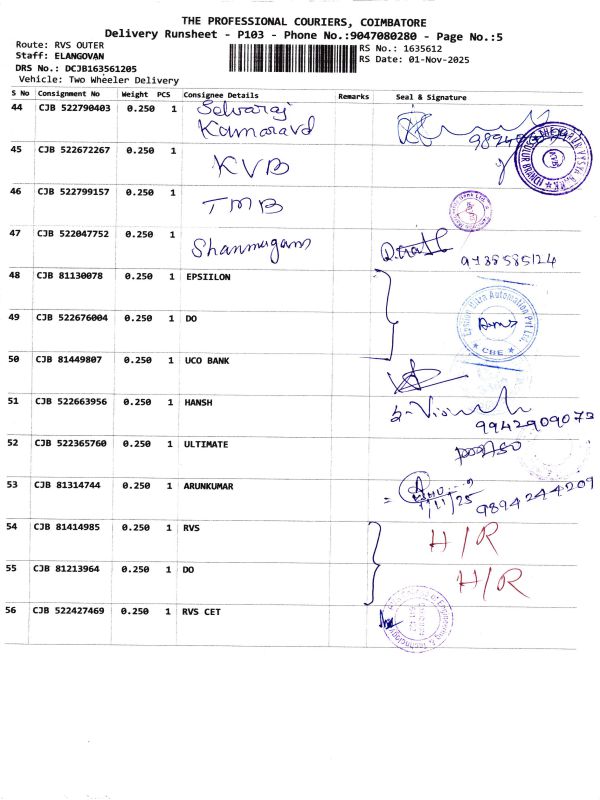 THE PROFESSIONAL COURIERS, COIMBATORE
Delivery Runsheet - P103 - Phone No.:9047080280 - Page No.:5
Route: RVS OUTER
Staff: ELANGOVAN
DRS No.: DCJB163561205
Vehicle: Two Wheeler Delivery
RS No.: 1635612
RS Date: 01-Nov-2025
S No Consignment No Weight PCS Consignee Details Remarks Seal & Signature
44 CJB 522790403 0.250 1 Selvaraj
45 CJB 522672267 0.250 1 KVB
46 CJB 522799157 0.250 1 TMB
47 CJB 522047752 0.250 1 Shanmugam
9738585124
48 CJB 81130078 0.250 1 EPSIILON
49 CJB 522676004 0.250 1 DO
CBE
50 CJB 81449807 0.250 1 UCO BANK
51 CJB 522663956 0.250 1 HANSH
9942909073
52 CJB 522365760 0.250 1 ULTIMATE
53 CJB 81314744 0.250 1 ARUNKUMAR
1/11/25 9894244209
54 CJB 81414985 0.250 1 RVS H/R
55 CJB 81213964 0.250 1 DO H/R
56 CJB 522427469 0.250 1 RVS CET